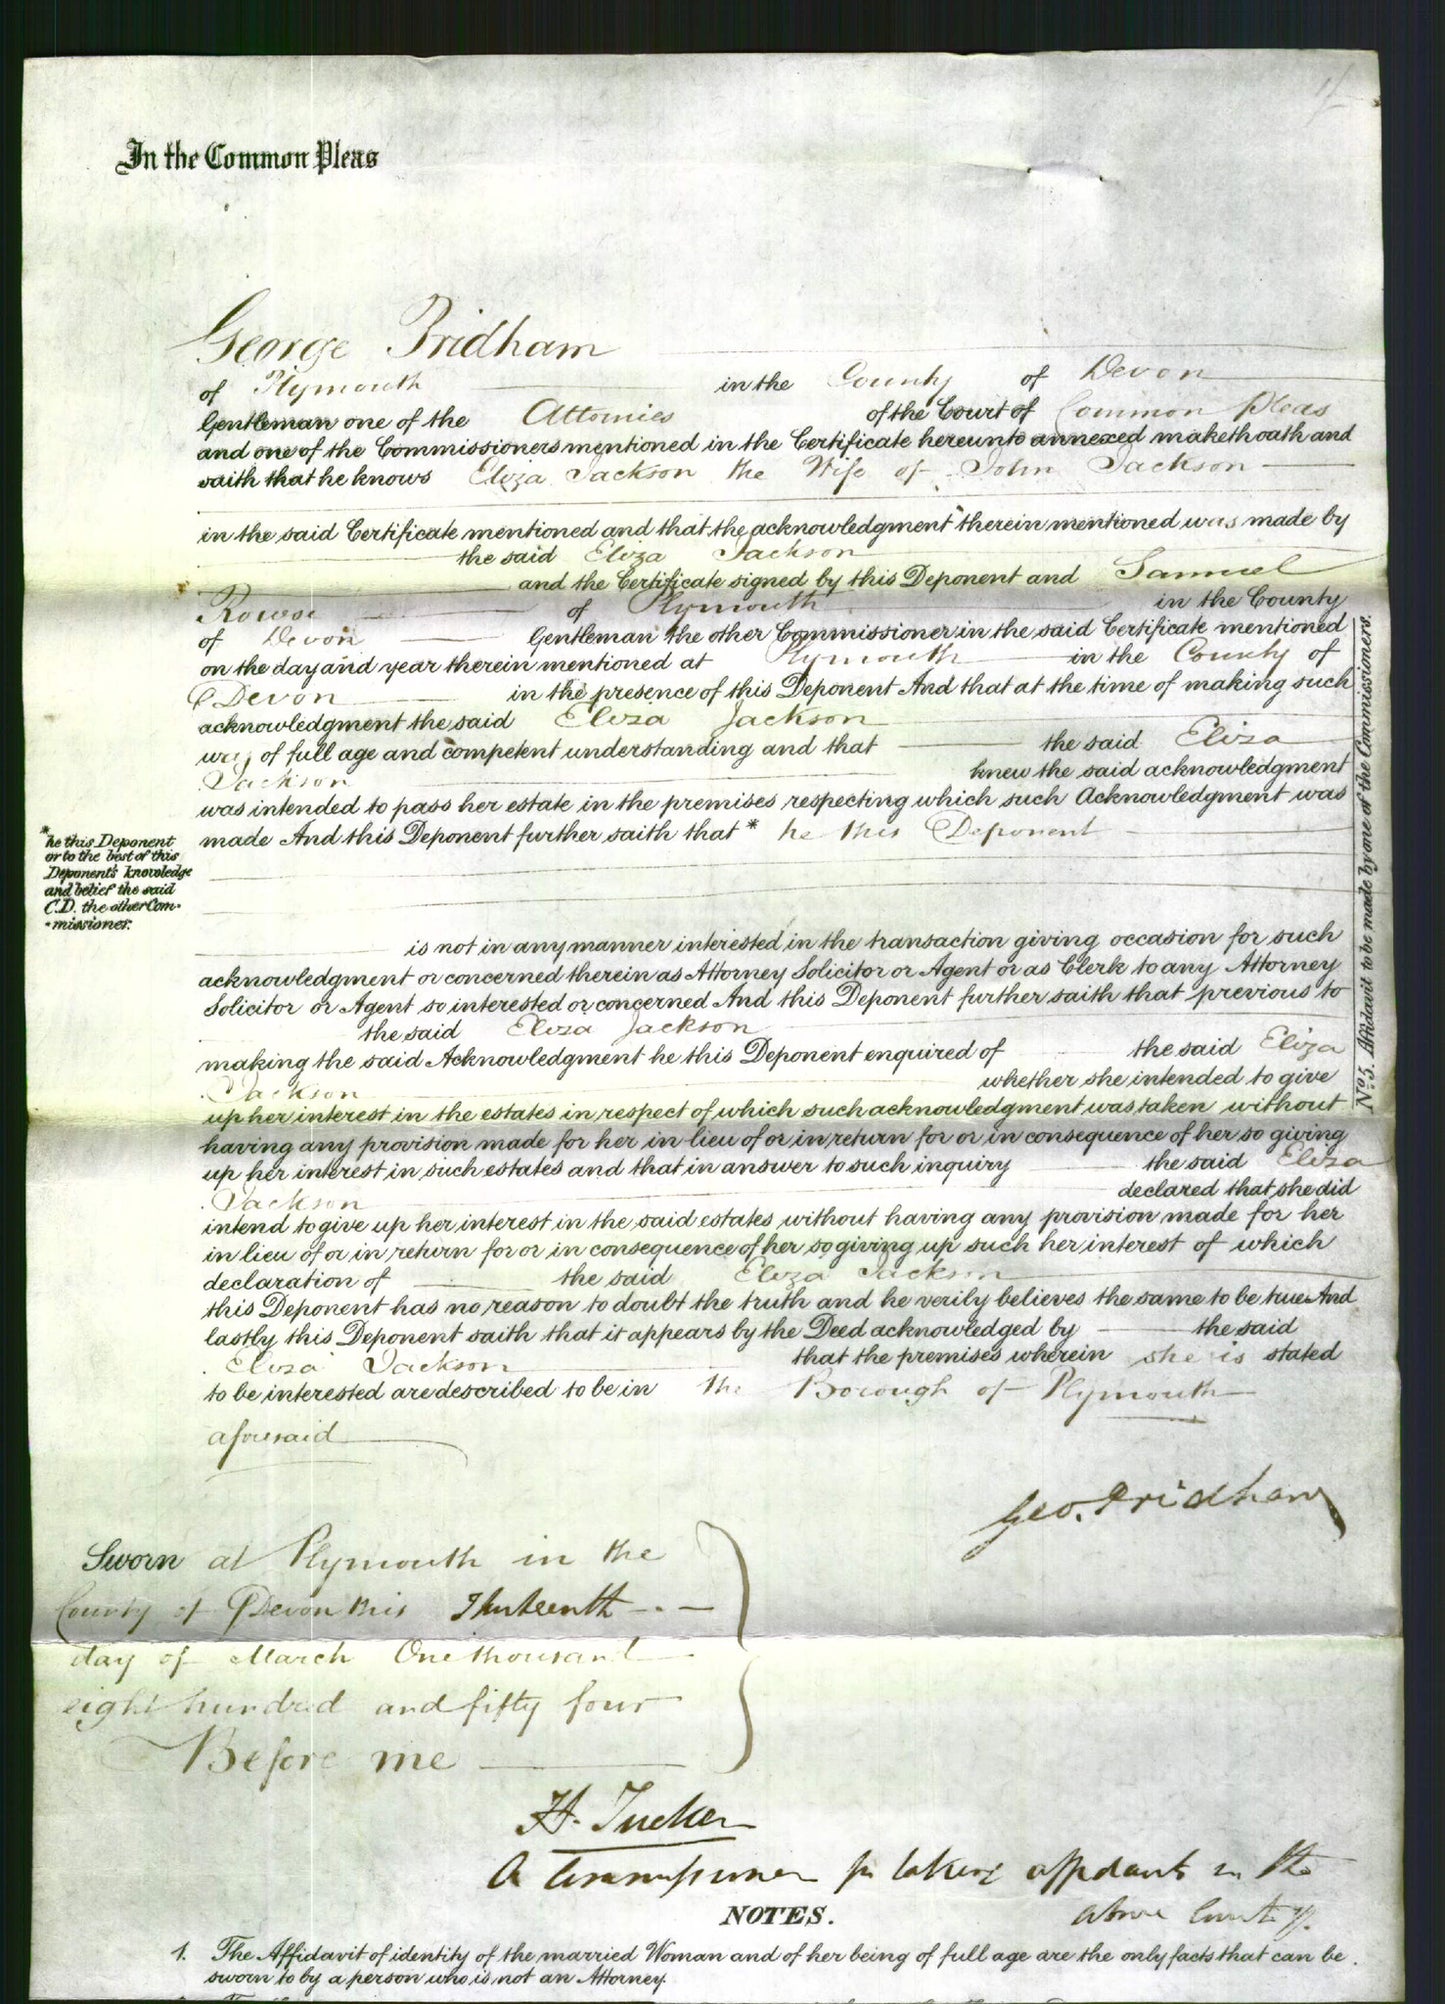 In the Common Pleas
George Pridham
of Plymouth in the County of Devon
Gentleman one of the Attornies of the Court of Common Pleas
and one of the Commissioners mentioned in the Certificate hereunto annexed maketh oath and
saith that he knows Eliza Jackson the Wife of John Jackson
in the said Certificate mentioned and that the acknowledgment therein mentioned was made by
the said Eliza Jackson
and the Certificate signed by this Deponent and Samuel
Rowse of Plymouth in the County
of Devon Gentleman the other Commissioner in the said Certificate mentioned
on the day and year therein mentioned at Plymouth in the County of
Devon in the presence of this Deponent And that at the time of making such
acknowledgment the said Eliza Jackson
was of full age and competent understanding and that the said Eliza
Jackson knew the said acknowledgment
was intended to pass her estate in the premises respecting which such Acknowledgment was
made And this Deponent further saith that * he this Deponent
* he this Deponent
or to the best of this
Deponent's knowledge
and belief the said
C.D. the other Com-
-missioner.
is not in any manner interested in the transaction giving occasion for such
acknowledgment or concerned therein as Attorney Solicitor or Agent or as Clerk to any Attorney
Solicitor or Agent so interested or concerned And this Deponent further saith that previous to
the said Eliza Jackson
making the said Acknowledgment he this Deponent enquired of the said Eliza
Jackson whether she intended to give
up her interest in the estates in respect of which such acknowledgment was taken without
having any provision made for her in lieu of or in return for or in consequence of her so giving
up her interest in such estates and that in answer to such inquiry the said Eliza
Jackson declared that she did
intend to give up her interest in the said estates without having any provision made for her
in lieu of or in return for or in consequence of her so giving up such her interest of which
declaration of the said Eliza Jackson
this Deponent has no reason to doubt the truth and he verily believes the same to be true And
lastly this Deponent saith that it appears by the Deed acknowledged by the said
Eliza Jackson that the premises wherein she is stated
to be interested are described to be in the Borough of Plymouth
aforesaid
No. 5. Affidavit to be made by one of the Commissioners.
Geo. Pridham
Sworn at Plymouth in the
County of Devon this Thirteenth
day of March One thousand
eight hundred and fifty four
Before me
H. Tucker
A Commissioner for taking affidavits in the
above Court &c.
NOTES.
1. The Affidavit of identity of the married Woman and of her being of full age are the only facts that can be
sworn to by a person who is not an Attorney.